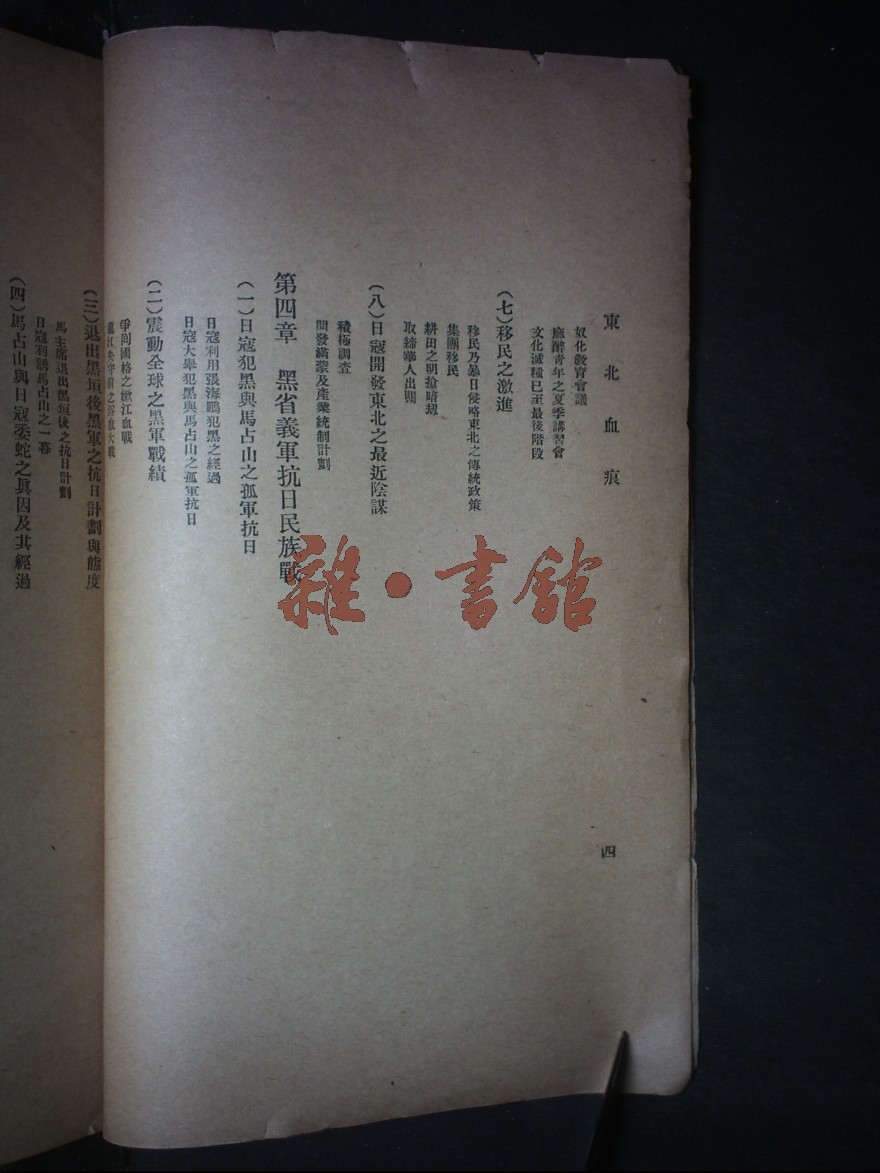 東北血痕
奴化教育會議
麻醉青年之夏季講習會
文化滅種已至最後階段
(七)移民之激進
移民乃暴日侵略東北之傳統政策
集團移民
耕田之明搶暗規
取締華人出賜
(八)日寇開發東北之最近陰謀
積極調查
開發滿蒙及產業統制計劃
第四章 黑省義軍抗日民族戰
(一)日寇犯黑與馬占山之孤軍抗日
日寇利用張海鵬犯黑之經過
日寇大舉犯黑與馬占山之孤軍抗日
(二)震動全球之黑軍戰績
爭囘國格之嫩江血戰
龍江失守前之浴血大戰
(三)退出黑垣後黑軍之抗日計劃與態度
馬主席退出黑垣後之抗日計劃
日寇利誘馬占山之一幕
(四)馬占山與日寇委蛇之眞因及其經過
四
雜·書館